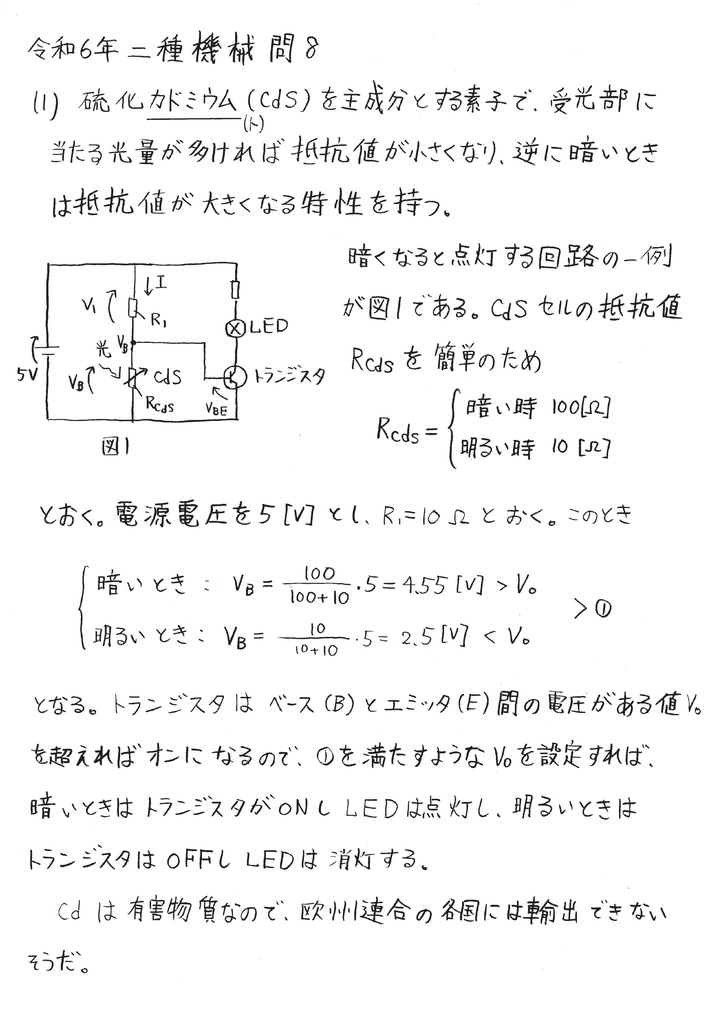 令和6年 二種 機械 問8
(1) 硫化カドミウム(CdS)を主成分とする素子で、受光部に
(ト)
当たる光量が多ければ抵抗値が小さくなり、逆に暗いとき
は抵抗値が大きくなる特性を持つ。
暗くなると点灯する回路の一例
が図1である。CdSセルの抵抗値
Rcdsを簡単のため
Rcds = { 暗い時 100[Ω]
明るい時 10[Ω]
I
V₁
R₁
LED
VB
光
5V
VB
CdS
Rcds
トランジスタ
VBE
図1
とおく。電源電圧を5[V]とし、R₁=10Ωとおく。このとき
暗いとき: VB = 100/(100+10)・5 = 4.55[V] > V₀
> ①
明るいとき: VB = 10/(10+10)・5 = 2.5[V] < V₀
となる。トランジスタはベース(B)とエミッタ(E)間の電圧がある値V₀
を超えればオンになるので、①を満たすようなV₀を設定すれば、
暗いときはトランジスタがONしLEDは点灯し、明るいときは
トランジスタはOFFしLEDは消灯する。
Cdは有害物質なので、欧州連合の各国には輸出できない
そうだ。